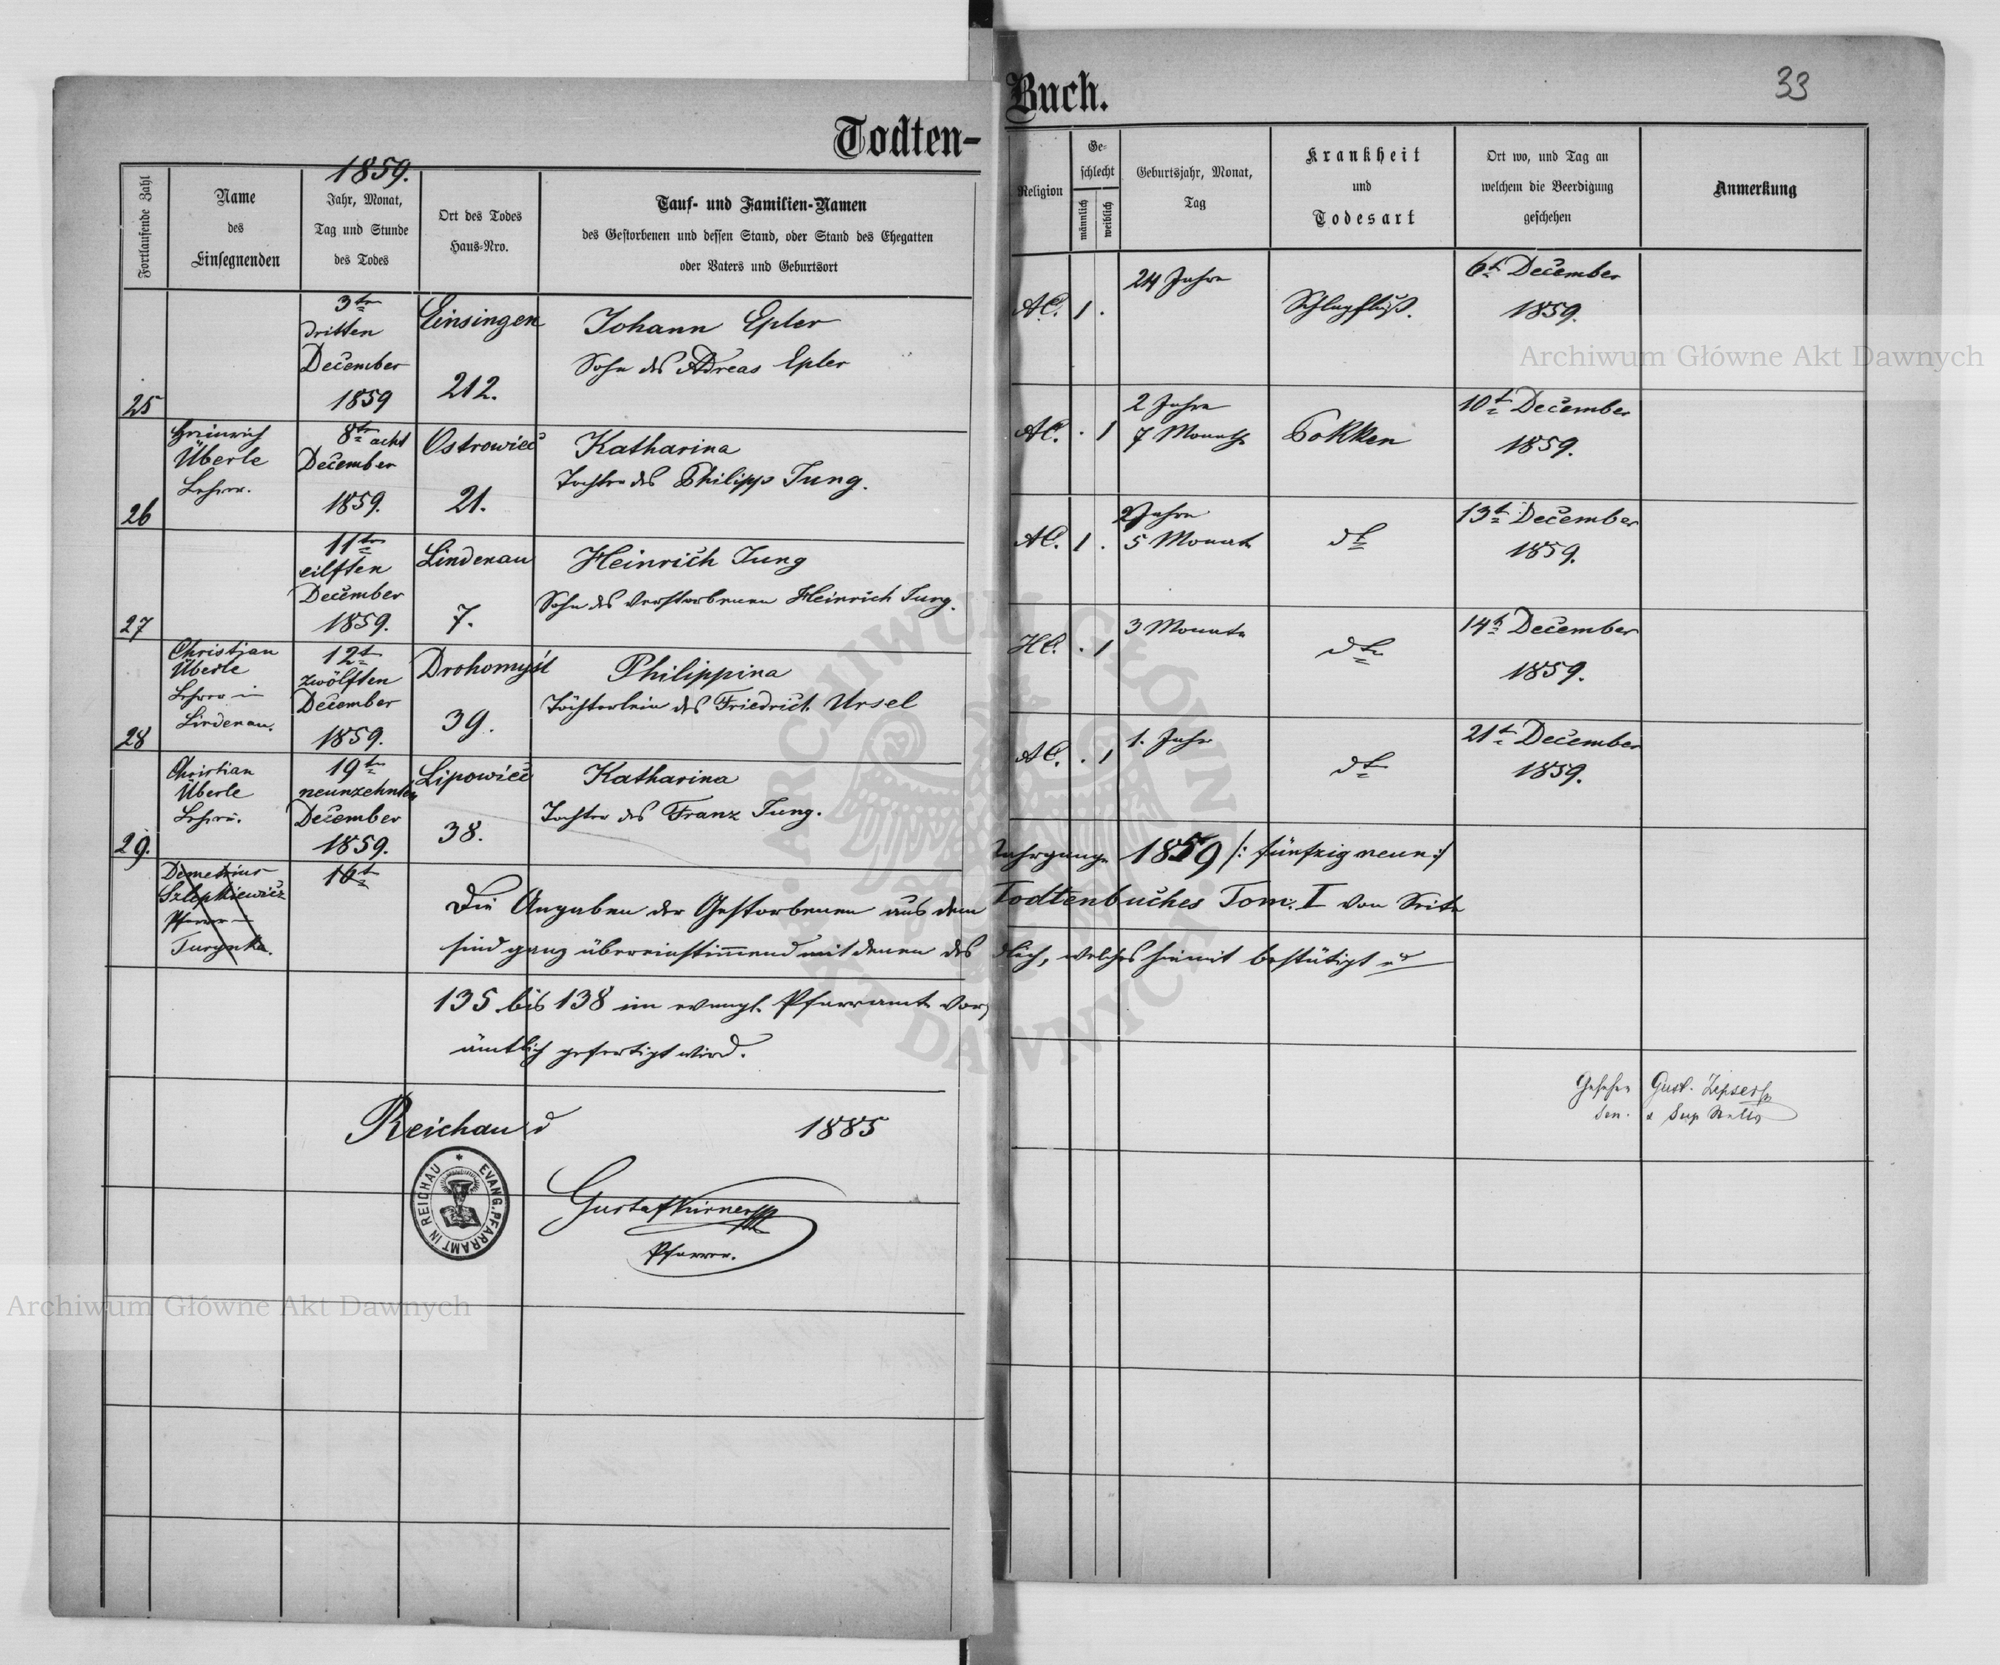 Todten-
Buch.
33
1859.
Fortlaufende Zahl
Name
des
Einsegnenden
Jahr, Monat,
Tag und Stunde
des Todes
Ort des Todes
Haus-Nro.
Tauf- und Familien-Namen
des Gestorbenen und dessen Stand, oder Stand des Ehegatten
oder Vaters und Geburtsort
Religion
Ge-
schlecht
männlich
weiblich
Geburtsjahr, Monat,
Tag
Krankheit
und
Todesart
Ort wo, und Tag an
welchem die Beerdigung
geschehen
Anmerkung
25
3ten
dritten
December
1859
Einsingen
212.
Johann Epler
Sohn des Adreas Epler
A.C.
1 .
24 Jahre
Schlagfluß.
6t December
1859.
26
Heinrich
Überle
Lehrer.
8ten acht
December
1859.
Ostrowiec
21.
Katharina
Tochter des Philipp Jung.
AC.
. 1
2 Jahre
7 Monate
Pokken
10t December
1859.
27
11ten
eilften
December
1859.
Lindenau
7.
Heinrich Jung
Sohn des verstorbenen Heinrich Jung.
AC.
1 .
2 Jahre
5 Monate
dto
13t December
1859.
28
Christian
Überle
Lehrer in
Lindenau.
12t
zwölften
December
1859.
Drohomyśl
39.
Philippina
Töchterlein des Friedrich Ursel
HC.
. 1
3 Monate
dto
14t December
1859.
29.
Christian
Überle
Lehrer.
19ten
neunzehnten
December
1859.
Lipowiec
38.
Katharina
Tochter des Franz Jung.
AC.
. 1
1. Jahr
dto
21t December
1859.
Demetrius
Szlepkiewicz
Pfarrer in
Turynka.
16t
Die Angaben der Gestorbenen aus dem Jahrgange 1859 /: fünfzig neun :/
sind ganz übereinstimmend mit denen des Todtenbuches Tom. I von Seite
135 bis 138 im evangl. Pfarramte vor dlich, welches hiemit bestätigt u
ämtlich gefertigt wird.
Reichau d 1885
EVANG. PFARRAMT IN REICHAU
Gustaf
Pfarrer.
Gesehen Gust. Zipser
Sen.
Archiwum Główne Akt Dawnych
Archiwum Główne Akt Dawnych
ARCHIWUM GŁÓWNE AKT DAWNYCH